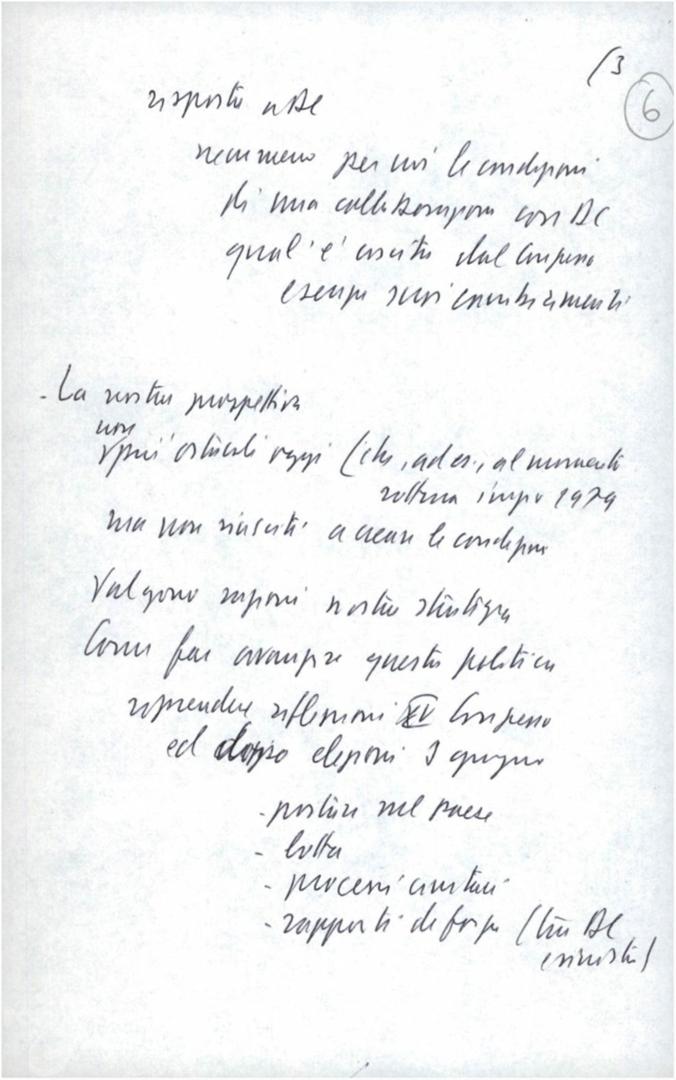 (3
6
risposta a DC
nemmeno per noi le condizioni
di una collaborazione con DC
qual'è uscita dal Congresso
senza suoi cambiamenti
- La nostra prospettiva
non
più ostacoli oggi (che, ad es., al momento
rottura inizio 1979
ma non riusciti a creare le condizioni
Valgono ragioni nostra strategia
Come far avanzare questa politica
riprendere riflessioni XV Congresso
ed dopo elezioni 3 giugno
- partire nel paese
- lotta
- processi unitari
- rapporti di forza (tra DC
e sinistra)